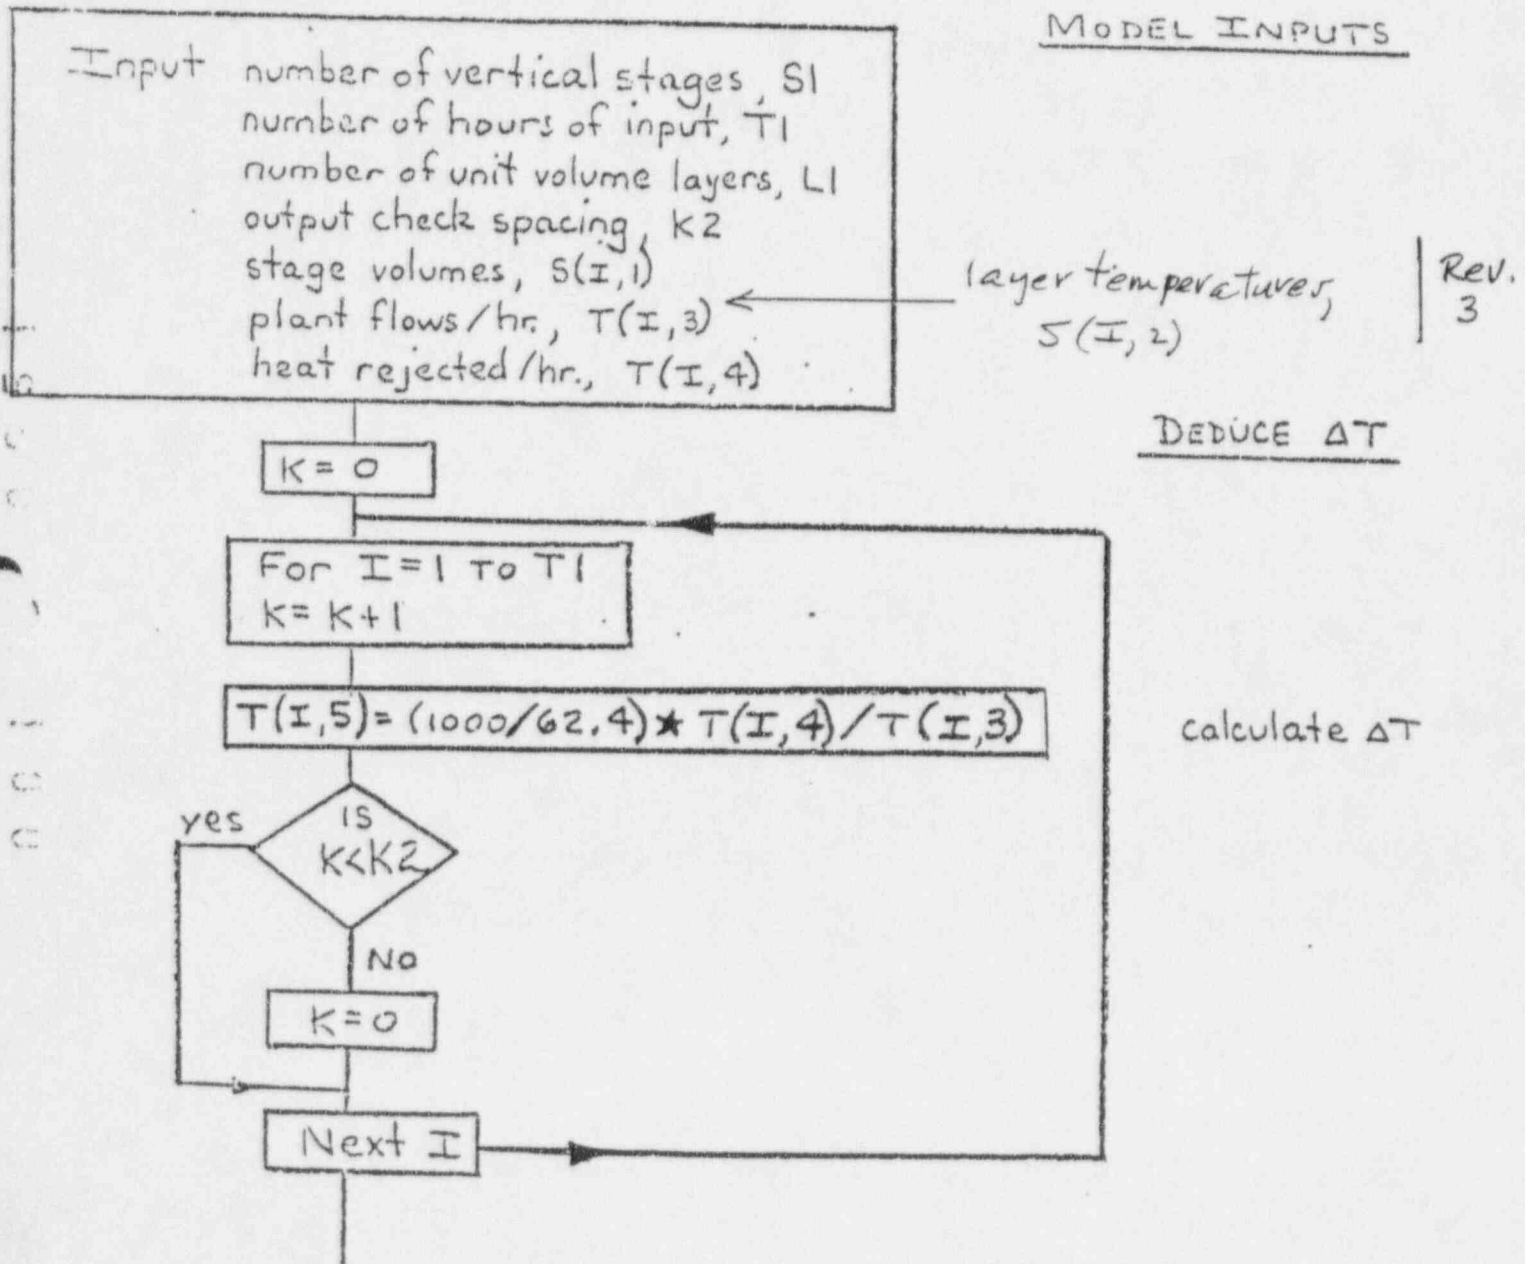 MODEL INPUTS
Input number of vertical stages, S1
number of hours of input, T1
number of unit volume layers, L1
output check spacing, K2
stage volumes, S(I,1)
plant flows/hr., T(I,3)
heat rejected/hr., T(I,4)
layer temperatures,
S(I,2)
Rev.
3
DEDUCE ΔT
K = 0
For I = 1 TO T1
K = K+1
T(I,5) = (1000/62.4)★ T(I,4)/T(I,3)
calculate ΔT
yes
IS
K<K2
NO
K=0
Next I